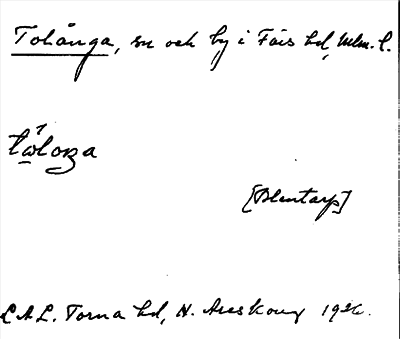 Tolånga, sn och by i Färs hd, Mlm. l.
[Blentarp]
L.A.L. Torna hd, N. Areskoug 1926.